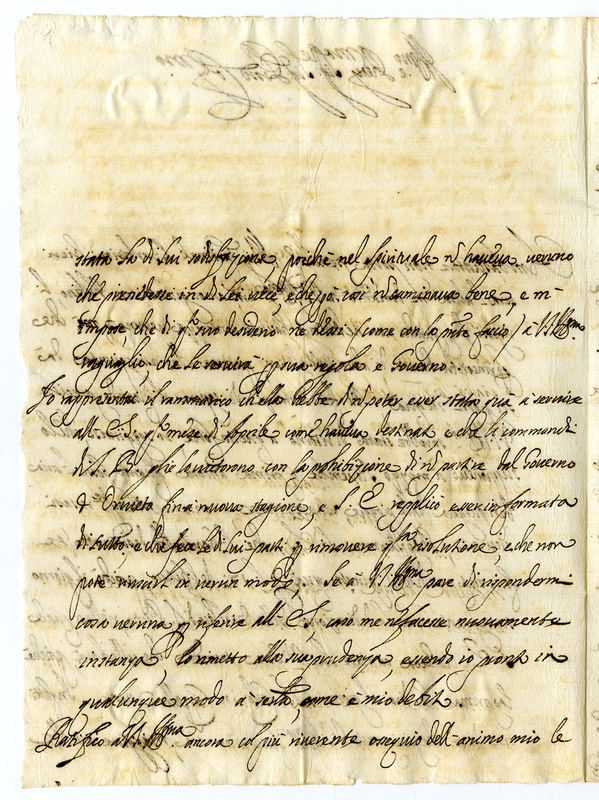 stata sia di lui sodisfazione, poiche nel spirituale nō haueua veruno
che presiedesse in di lei vece, e che però così nō caminaua bene, e m'
impose, che di q.to suo desiderio ne dessi (come con la pnte faccio) a V. S. Ill.ma
raguaglio, che le seruirà p sua regola e Gouerno
Io rappresentai il rammarico ch'ella hebbe di nō poter esser stata quà à seruire
all' E. S. q.to mese di Aprile come haueua destinat e che li commandi
di N. S. glie lo vietorono con la prohibizione di nō partire dal Gouerno
d' Orvieto fin a nuoua stagione, e S. E. replicò esser informata
di tutto, e che fece le di lui parti p rimouere q.ta risolutione, e che non
potè in verun modo, Se à V. S. Ill.ma pare di rispondermi
cosa veruna p riferire all' E. S. caso me ne facesse nuouamente
instanza, lo rimetto alla sua prudenza, essendo io pront in
qualunque modo à seruirla, come è mio debit
Ratifico a V. S. Ill.ma ancora col più riuerente ossequio dell' animo mio le